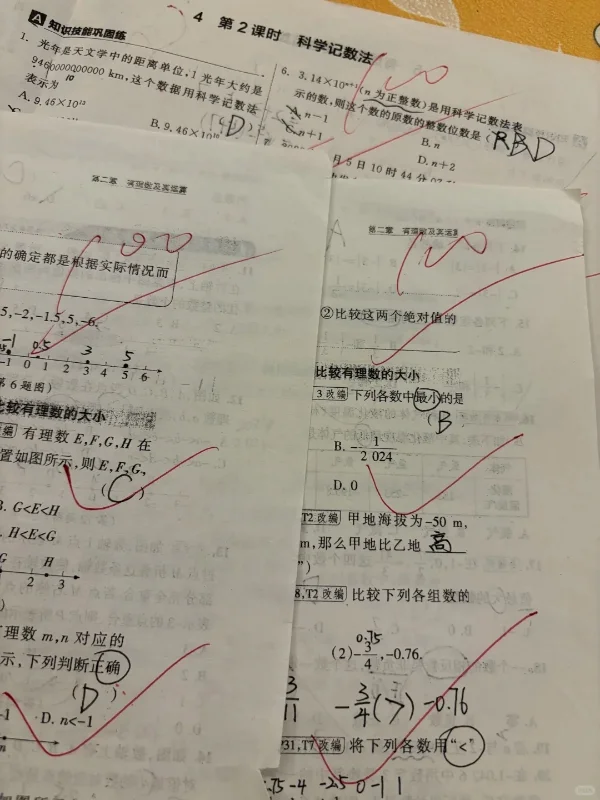 4 第2课时 科学记数法
A 知识技能巩固练
1. 光年是天文学中的距离单位,1光年大约是
9460000000000 km,这个数据用科学记数法
10
表示为
(D)
A. 9.46×10¹³
B. 9.46×10
6. 3.14×10ⁿ⁺¹(n为正整数)是用科学记数法表
示的数,则这个数的原数的整数位数是
A. n-1
B. n
C. n+1
D. n+2
月5日10时44分07
100
第二章 有理数及其运算
100
的确定都是根据实际情况而
5,-2,-1.5,5,-6.
-1 0.5 3 5
-1 0 1 2 3 4 5 6
第6题图)
比较有理数的大小
编 有理数E,F,G,H在
置如图所示,则E,F,G,
(C)
B. G<E<H
. H<E<G
G H
2 3
理数m,n对应的
示,下列判断正确
(D)
-1 D. n<-1
m
第二章 有理数及其运算
100
②比较这两个绝对值的
比较有理数的大小
3改编 下列各数中最小的是
(B
B. -1/2 024
D. 0
T2改编 甲地海拔为-50 m,
m,那么甲地比乙地 高
")
8,T2改编 比较下列各组数的
0.75
(2)-3/4,-0.76.
3/11 -3/4(>)-0.76
P31,T7改编 将下列各数用"<"
.75 -4 -2.5 0 -1 1